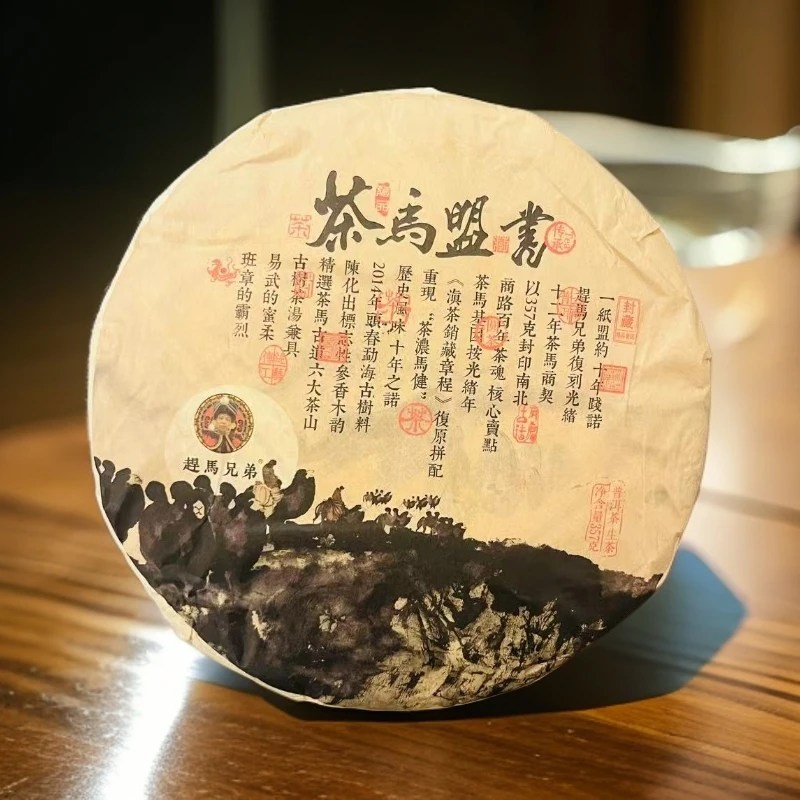 茶馬盟書
一紙盟約 十年踐諾
趕馬兄弟復刻光緒
十二年茶馬商契
以357克封印南北
商路百年茶魂 核心賣點
茶馬基因 按光緒年
《滇茶銷藏章程》復原拼配
重現“茶濃馬健”
歷史風味 十年之諾
2014年頭春勐海古樹料
陳化出標志性參香木韵
精選茶馬古道六大茶山
古樹茶湯兼具
易武的蜜柔
班章的霸烈
趕馬兄弟
普洱茶 生茶
净含量357克
茶
茶
封藏